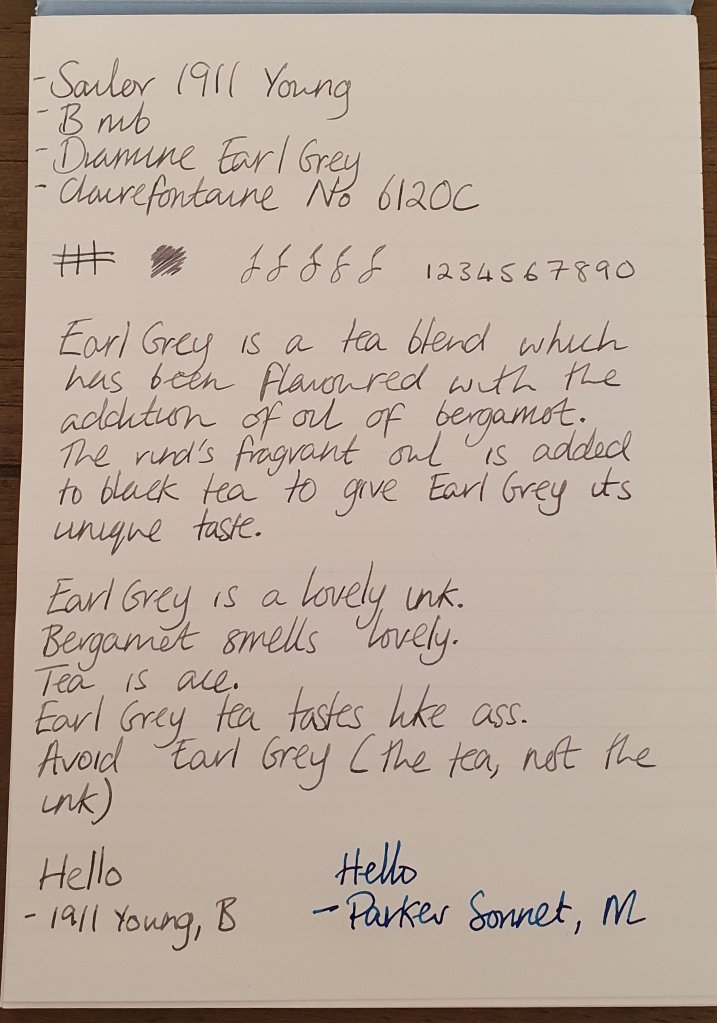 - Sailor 1911 Young
- B nib
- Diamine Earl Grey
- Clairefontaine No 6120C
1234567890
Earl Grey is a tea blend which
has been flavoured with the
addition of oil of bergamot.
The rind's fragrant oil is added
to black tea to give Earl Grey its
unique taste.
Earl Grey is a lovely ink.
Bergamot smells lovely.
Tea is ace.
Earl Grey tea tastes like ass.
Avoid Earl Grey (the tea, not the
ink)
Hello
- 1911 Young, B
Hello
- Parker Sonnet, M